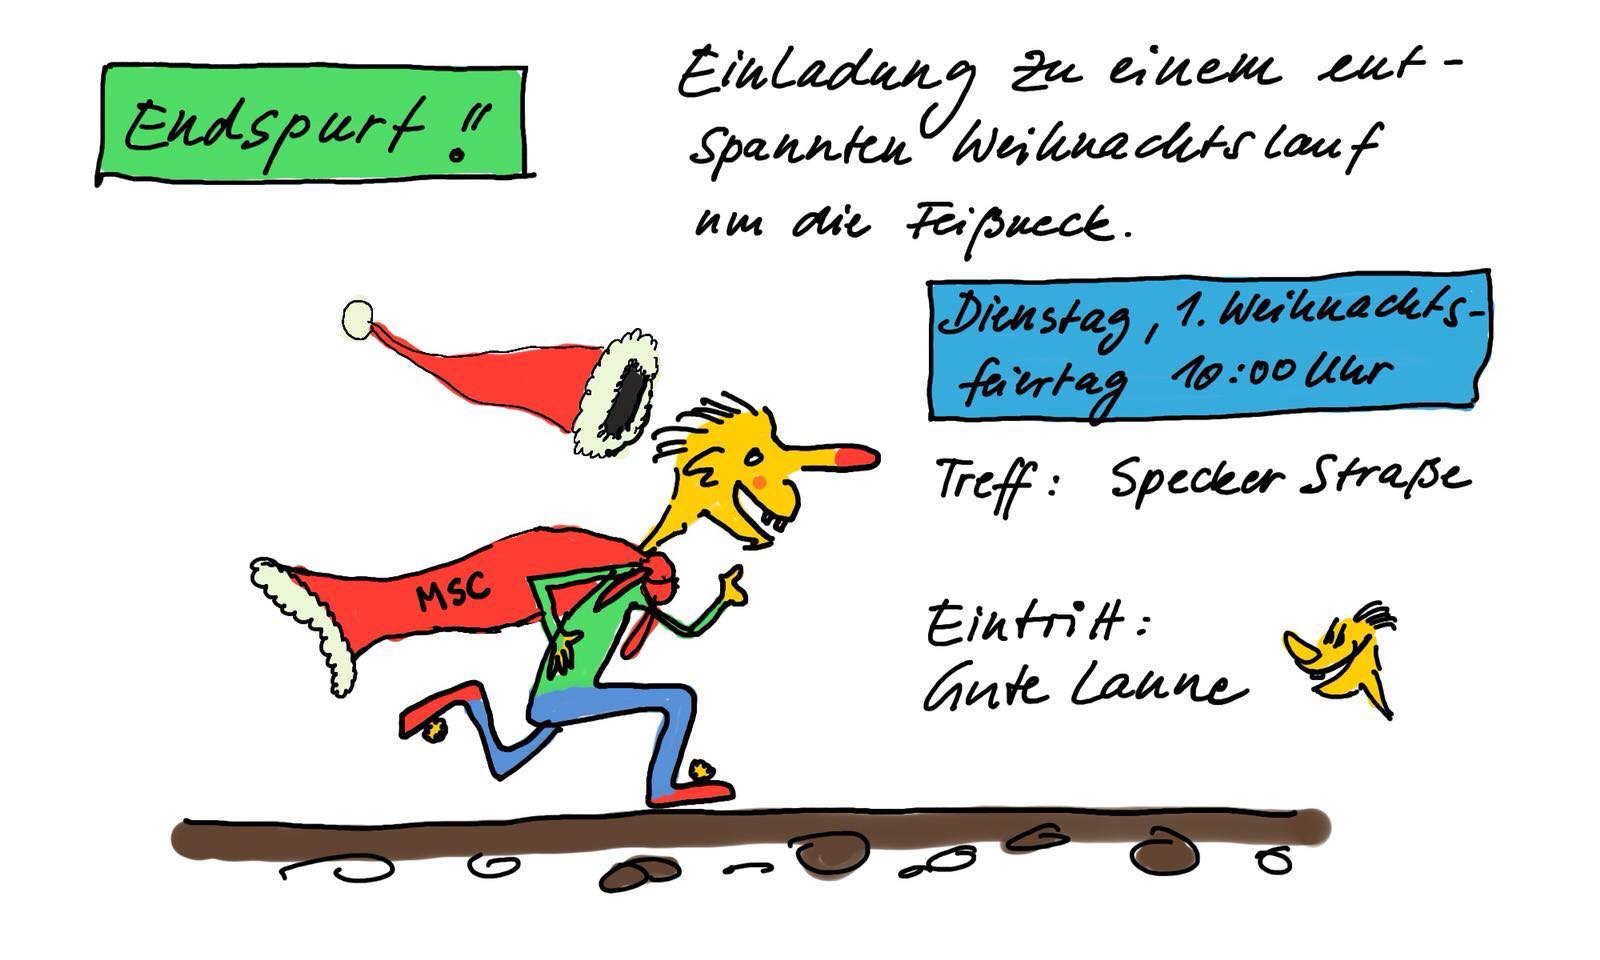 Endspurt!!
Einladung zu einem ent-
spannten Weihnachtslauf
um die Feißneck.
Dienstag, 1. Weihnachts-
feiertag 10:00 Uhr
Treff: Specker Straße
MSC
Eintritt:
Gute Laune